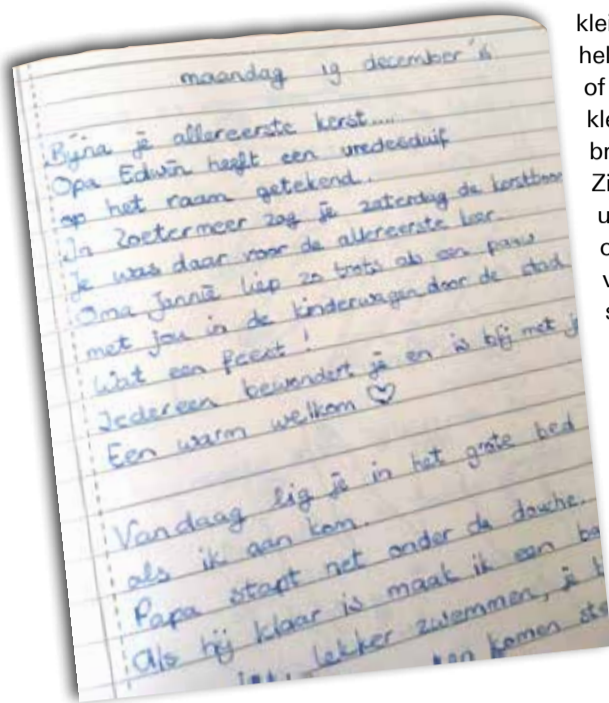 maandag 19 december '16
Bijna je allereerste kerst....
Opa Edwin heeft een vredesduif
op het raam getekend.
In Zoetermeer zag je zaterdag de kerstboom
Je was daar voor de allereerste keer.
Oma Jannie liep zo trots als een pauw
met jou in de kinderwagen door de stad
Wat een feest!
Iedereen bewondert je en is blij met
Een warm welkom ♡
Vandaag lig je in het grote bed
als ik aan kom.
Papa stapt net onder de douche.
Als hij klaar is maak ik een
lekker zwemmen, je
komen
klei
hel
of
kle
br
Zi
u
v
s